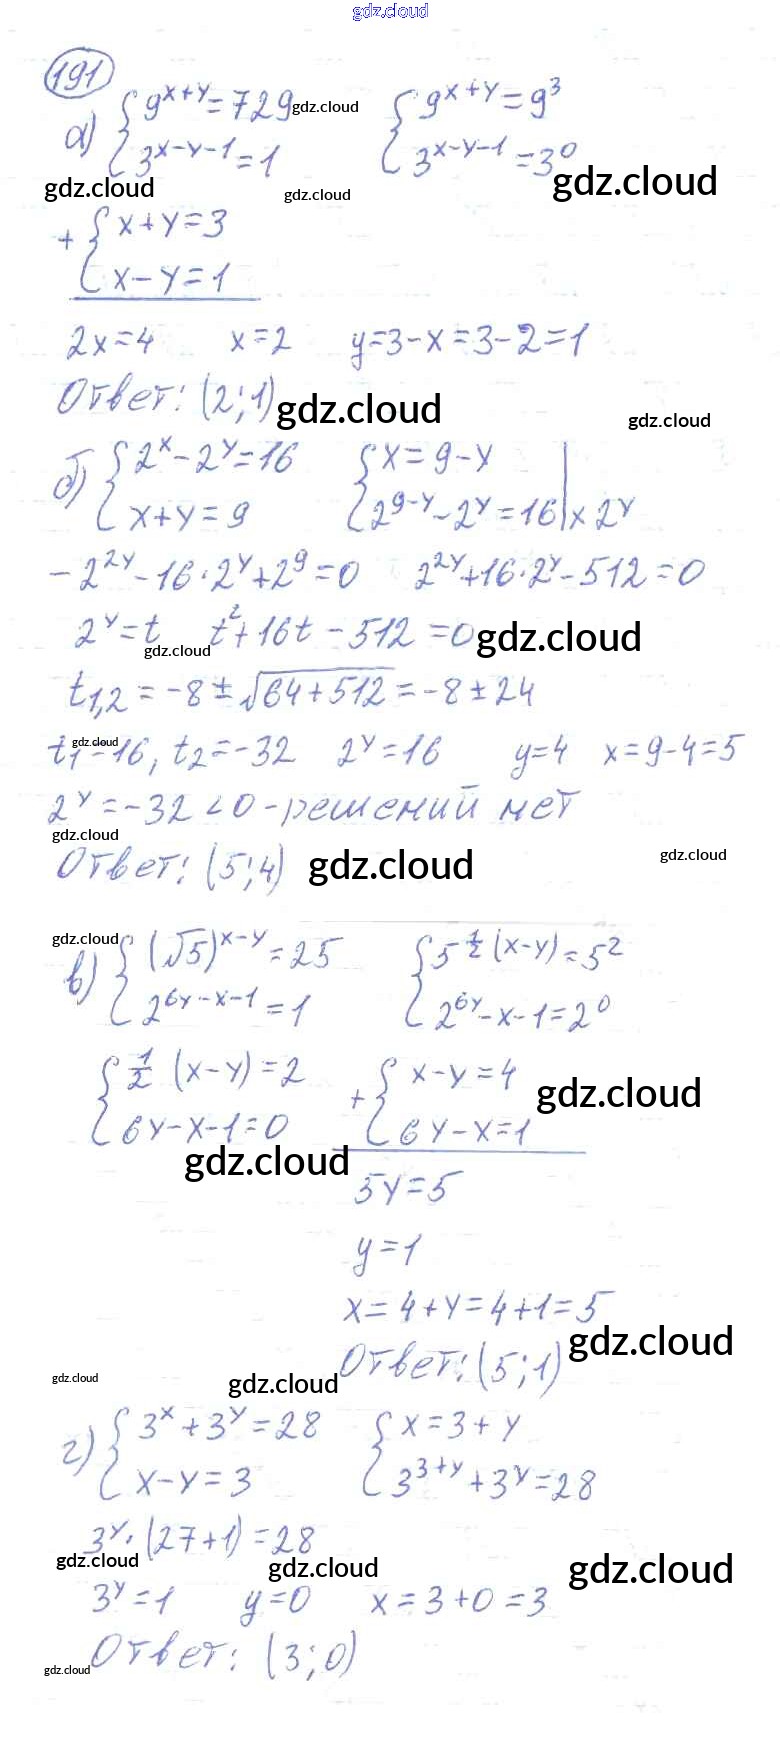 gdz.cloud
191
а) { 9^(x+y) = 729 gdz.cloud { 9^(x+y) = 9^3
{ 3^(x-y-1) = 1 { 3^(x-y-1) = 3^0
gdz.cloud gdz.cloud gdz.cloud
+ { x+y=3
{ x-y=1
2x=4 x=2 y=3-x=3-2=1
Ответ: (2;1) gdz.cloud gdz.cloud
б) { 2^x - 2^y = 16 { x=9-y
{ x+y=9 { 2^(9-y) - 2^y = 16 | × 2^y
-2^(2y) - 16·2^y + 2^9 = 0 2^(2y) + 16·2^y - 512 = 0
2^y = t t^2 + 16t - 512 = 0 gdz.cloud
gdz.cloud
t1,2 = -8 ± √(64+512) = -8 ± 24
gdz.cloud
t1=16, t2=-32 2^y=16 y=4 x=9-4=5
2^y = -32 < 0 - решений нет
gdz.cloud
Ответ: (5;4) gdz.cloud gdz.cloud
gdz.cloud
в) { (√5)^(x-y) = 25 { 5^(1/2 (x-y)) = 5^2
{ 2^(6y-x-1) = 1 { 2^(6y)-x-1 = 2^0
{ 1/2 (x-y) = 2 + { x-y=4 gdz.cloud
{ 6y-x-1=0 { 6y-x=1
gdz.cloud
5y=5
y=1
x=4+y=4+1=5
Ответ: (5;1) gdz.cloud
gdz.cloud gdz.cloud
г) { 3^x + 3^y = 28 { x=3+y
{ x-y=3 { 3^(3+y) + 3^y = 28
3^y·(27+1)=28
gdz.cloud gdz.cloud gdz.cloud
3^y=1 y=0 x=3+0=3
Ответ: (3;0)
gdz.cloud